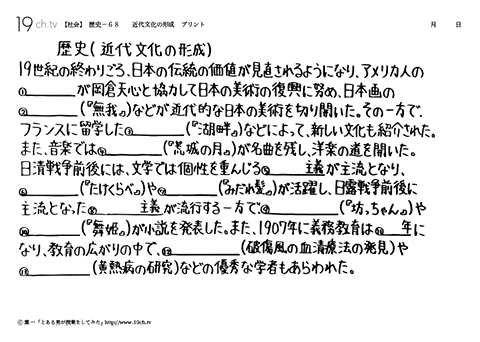 19ch.tv 【社会】 歴史－６８ 近代文化の形成 プリント 月 日
歴史(近代文化の形成)
19世紀の終わりごろ、日本の伝統の価値が見直されるようになり、アメリカ人の
①________が岡倉天心と協力して日本の美術の復興に努め、日本画の
②________(『無我』)などが近代的な日本の美術を切り開いた。その一方で、
フランスに留学した③________(『湖畔』)などによって、新しい文化も紹介された。
また、音楽では④________(『荒城の月』)が名曲を残し、洋楽の道を開いた。
日清戦争前後には、文学では個性を重んじる⑤____主義が主流となり、
⑥________(『たけくらべ』)や⑦________(『みだれ髪』)が活躍し、日露戦争前後に
主流となった⑧____主義が流行する一方で⑨________(『坊っちゃん』)や
⑩________(『舞姫』)が小説を発表した。また、1907年に義務教育は⑪____年に
なり、教育の広がりの中で、⑫________(破傷風の血清療法の発見)や
⑬________(黄熱病の研究)などの優秀な学者もあらわれた。
Ⓒ葉一「とある男が授業をしてみた」http://www.19ch.tv